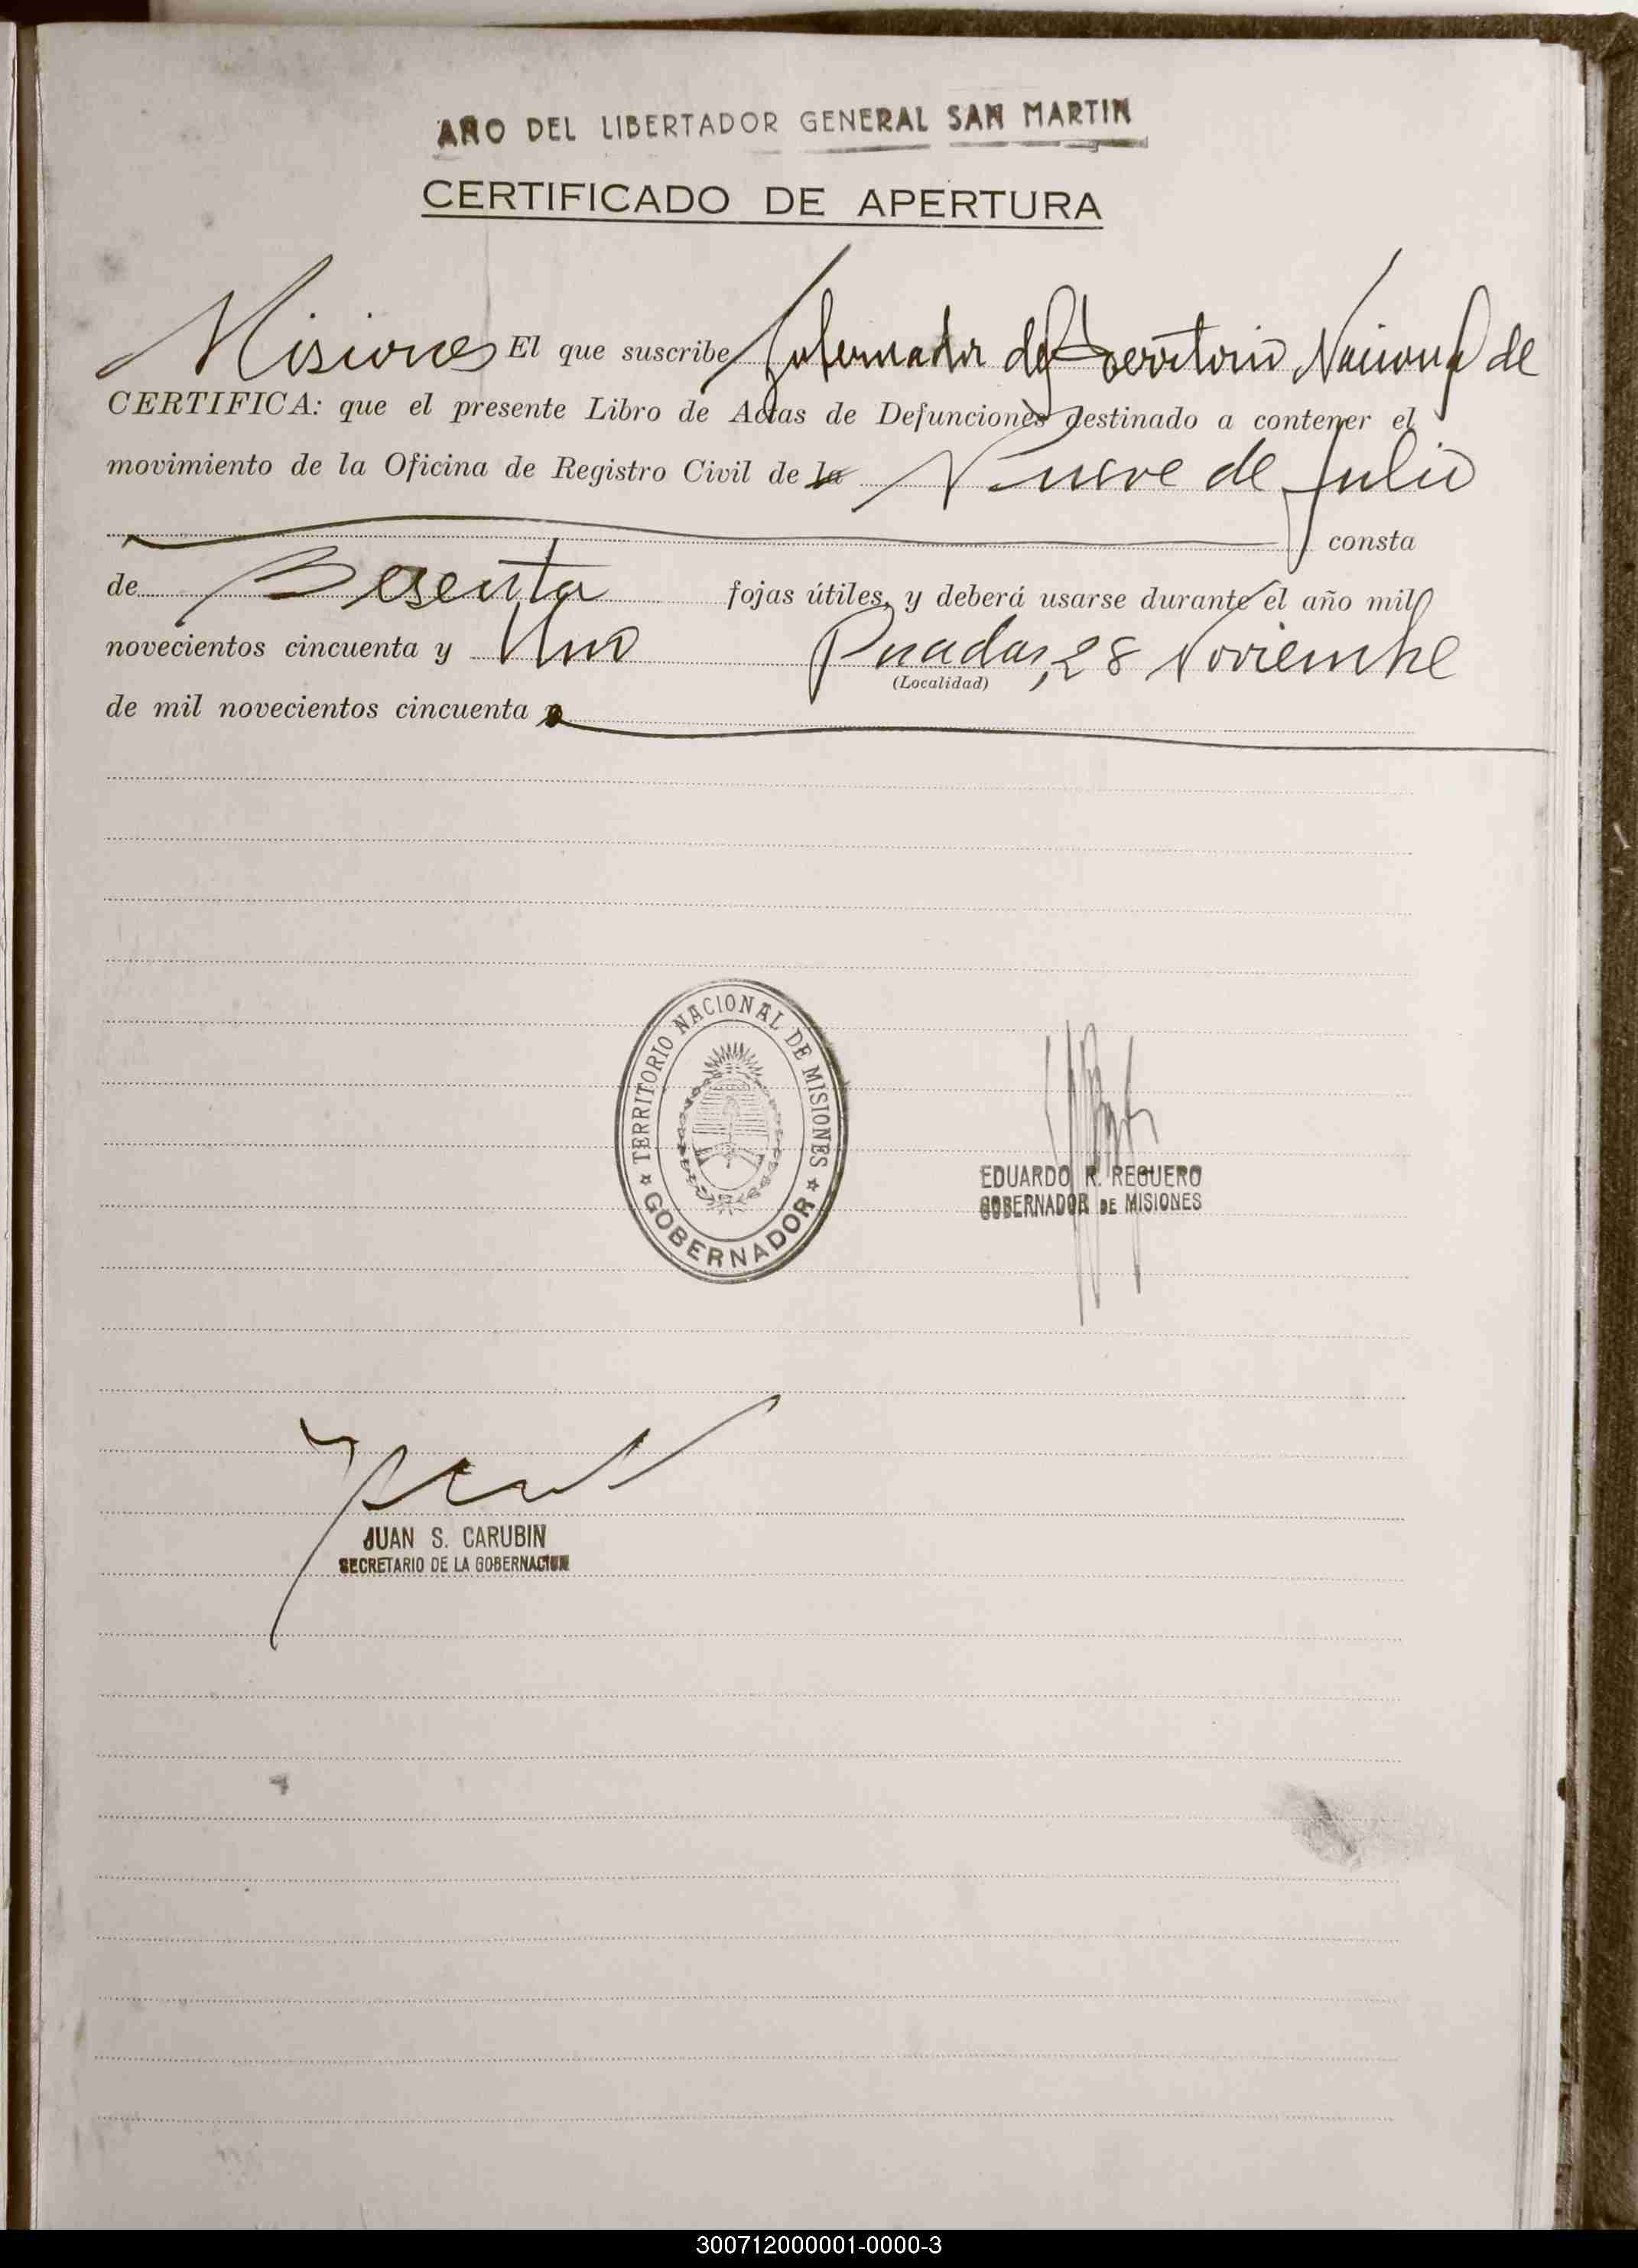 AÑO DEL LIBERTADOR GENERAL SAN MARTIN
CERTIFICADO DE APERTURA
El que suscribe Gobernador del Territorio Nacional de
Misiones
CERTIFICA: que el presente Libro de Actas de Defunciones destinado a contener el
movimiento de la Oficina de Registro Civil de la Nueve de Julio
consta
de Sesenta fojas útiles, y deberá usarse durante el año mil
novecientos cincuenta y Uno Posadas, 28 Noviembre
(Localidad)
de mil novecientos cincuenta
TERRITORIO NACIONAL DE MISIONES
GOBERNADOR
EDUARDO R. REGUERO
GOBERNADOR DE MISIONES
JUAN S. CARUBIN
SECRETARIO DE LA GOBERNACION
300712000001-0000-3